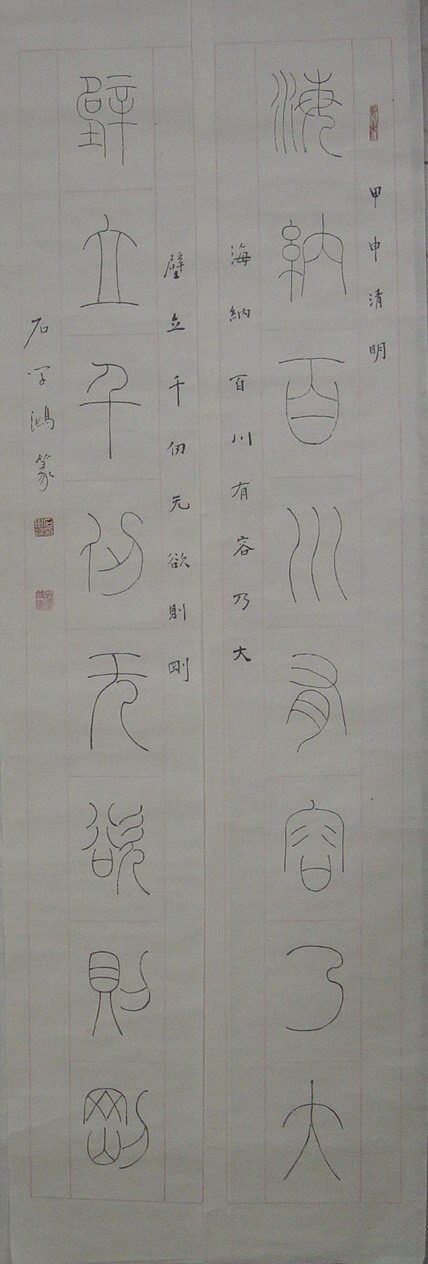 甲申清明
海納百川有容乃大
海納百川有容乃大
壁立千仞无欲則剛
壁立千仞无欲則剛
石學鴻篆